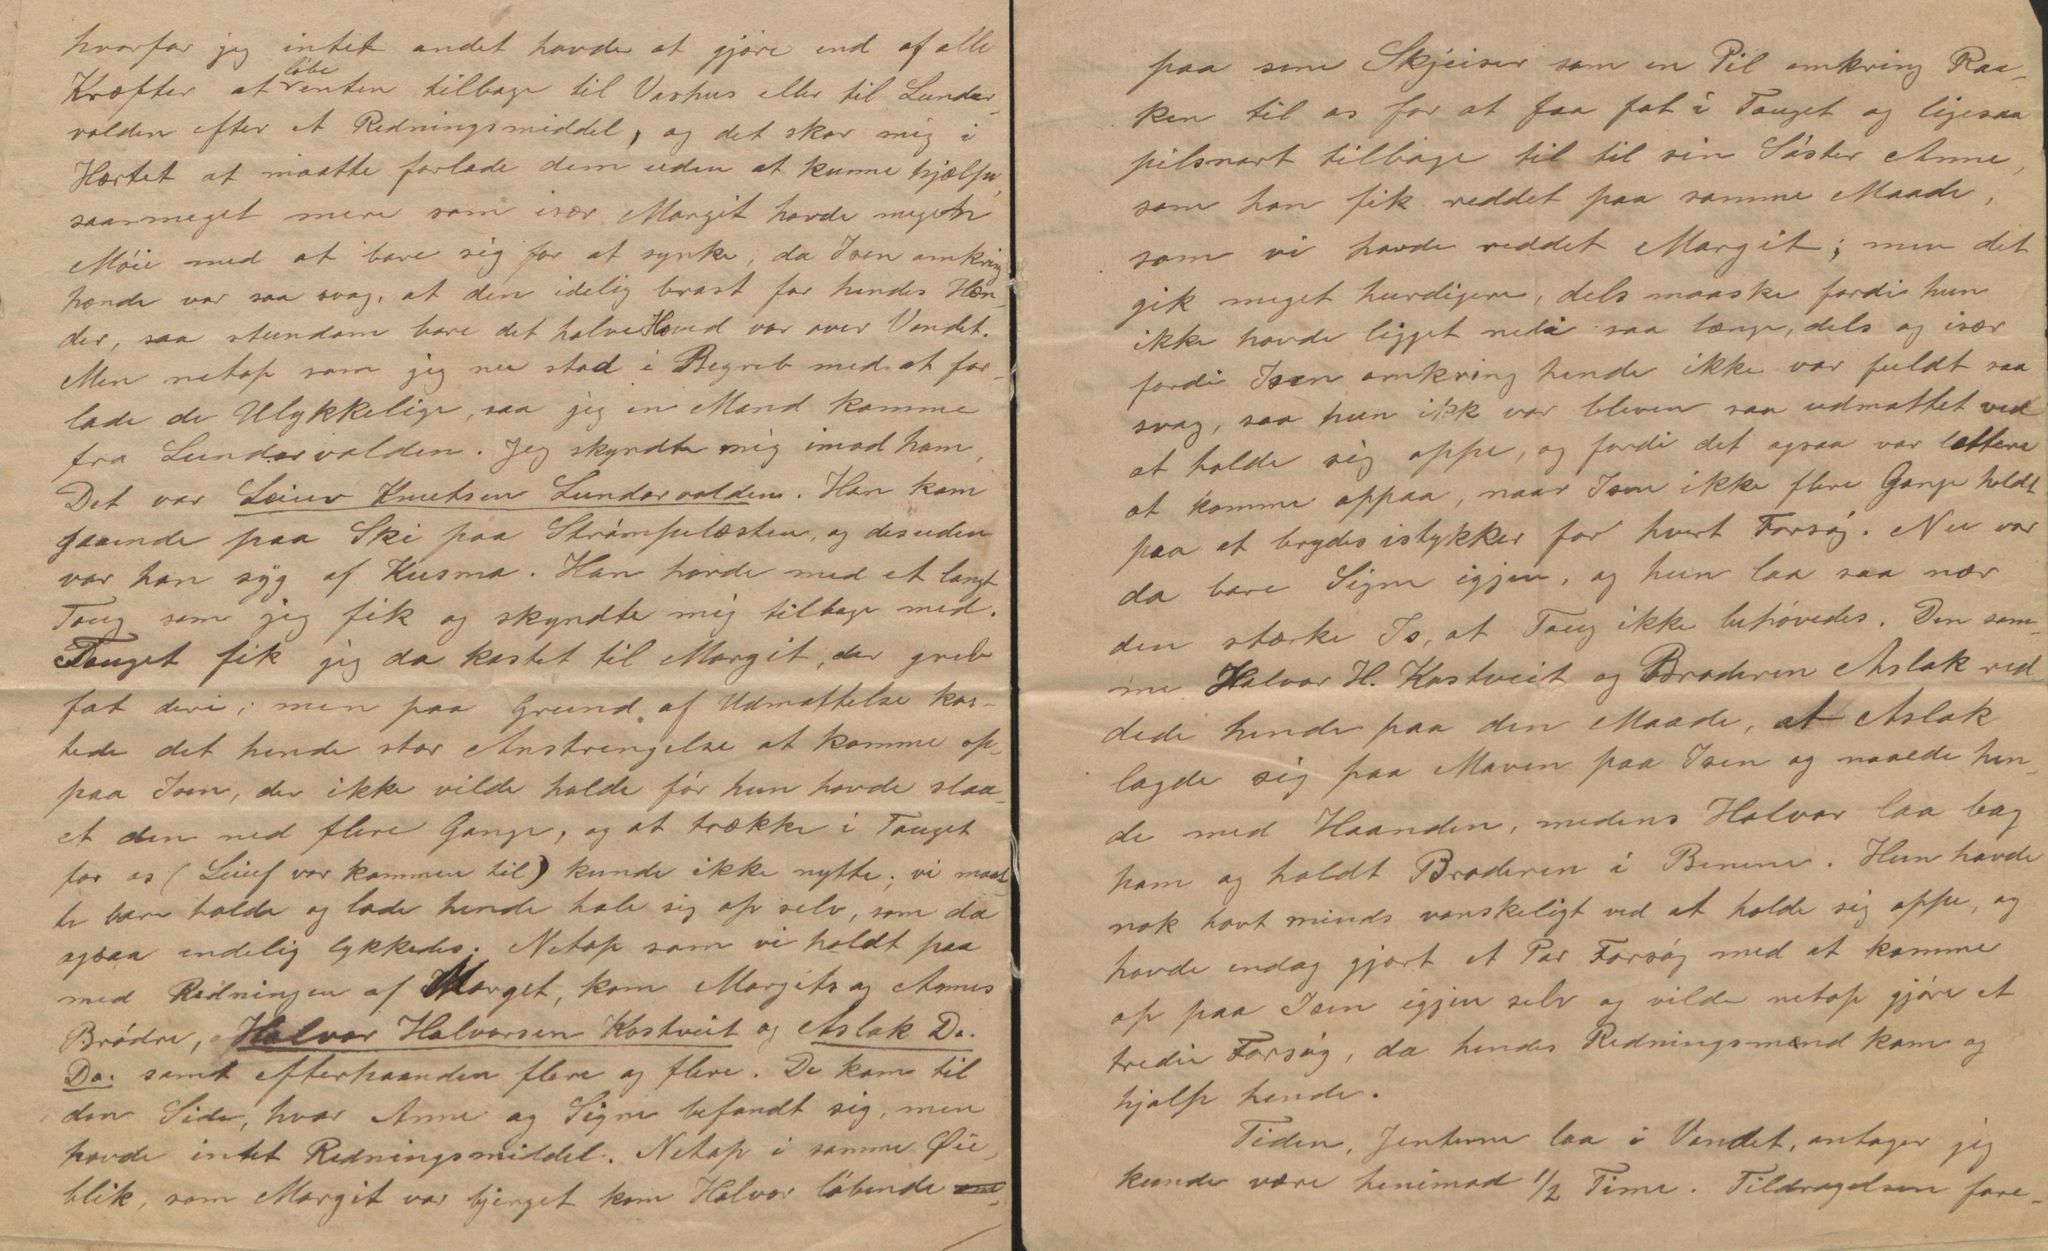 hvorfor jeg intet andet havde at gjøre end af alle
Kræfter at løbe enten tilbage til Vashus eller til Lundar-
valden efter et Redningsmiddel, og det skar mig i
Hærtet at maatte forlade dem uden at kunne hjælpe,
saameget mere som især Margit havde megen
Møie med at bare sig for at synke, da Isen omkring
hende var saa svag, at den idelig brast for hendes Hæn-
der, saa stundom bare det halve Hoved var over Vandet.
Men netop som jeg nu stod i Begreb med at for-
lade de Ulykkelige, saa jeg en Mand komme
fra Lundarvalden. Jeg skyndte mig imod ham,
Det var Leiuv Knutsen Lundarvalden. Han kom
gaaende paa Ski paa Strømpelæsten, og desuden
var han syg af Kusma. Han havde med et langt
Toug som jeg fik og skyndte mig tilbage med.
Touget fik jeg da kastet til Margit, der greb
fat deri; men paa Grund af Udmattelse kos-
tede det hende stor Anstrengelse at komme op-
paa Isen, der ikke vilde holde før hun havde slaa-
et den ned flere Gange, og at trække i Touget
for os (Leiuf var kommen til) kunde ikke nytte; vi maat
te bare holde og lade hende hale sig op selv, som da
ogsaa endelig lykkedes. Netop som vi holdt paa
med Redningen af Marget, kom Margits og Annes
Brødre, Halvor Halvorsen Kostveit og Aslak Do.
Do. samt efterhaanden flere og flere. De kom til
den Side, hvor Anne og Signe befandt sig, men
havde intet Redningsmiddel. Netop i samme Øie-
blik, som Margit var bjerget kom Halvor løbende om-
paa sine Skjeiser som en Pil omkring Raa-
ken til os for at faa fat i Touget og ligesaa
pilsnart tilbage til til sin Søster Anne,
som han fik reddet paa samme Maade,
som vi havde reddet Margit; men det
gik meget hurdigere, dels maaske fordi hun
ikke havde ligget nedi saa længe, dels og især
fordi Isen omkring hende ikke var fuldt saa
svag, saa hun ikk var bleven saa udmattet ved
at holde sig oppe, og fordi det ogsaa var lettere
at komme oppaa, naar Isen ikke flere Gange holdt
paa at brydes istykker for hvert Forsøg. Nu var
da bare Signe igjen, og hun laa saa nær
den stærke Is, at Toug ikke behøvedes. Den sam-
me Halvor H. Kostveit og Broderen Aslak red
dede hende paa den Maade, at Aslak
lagde sig paa Maven paa Isen og naaede hen-
de med Haanden, medens Halvor laa bag
ham og holdt Broderen i Benene. Hun havde
nok havt minds vanskeligt ved at holde sig oppe, og
havde endog gjort et Par Forsøg med at komme
op paa Isen igjen selv og vilde netop gjøre et
tredie Forsøg, da hendes Redningsmænd kom og
hjalp hende.
Tiden, Jenterne laa i Vandet, antager jeg
kunde være henimod 1/2 Time. Tildragelsen fore-